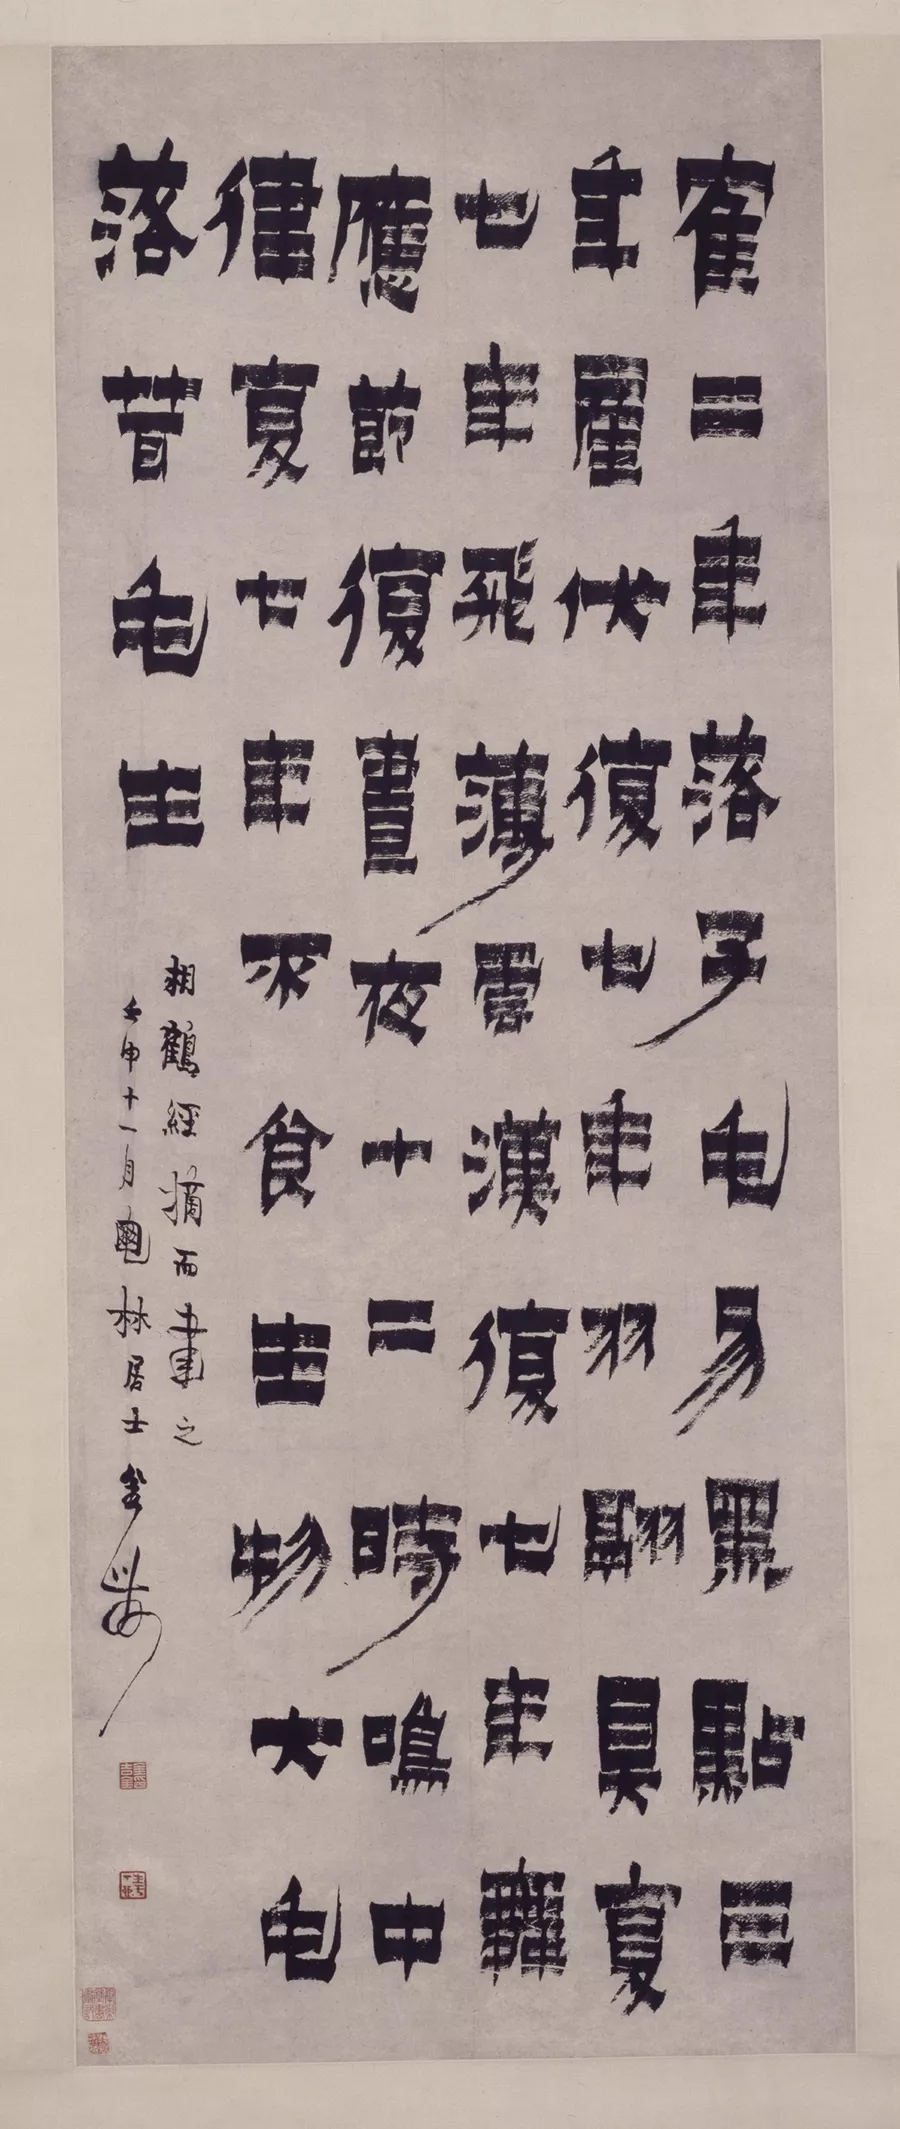 隺二年落子毛易黑點三
年產伏復七年羽翮具复
七年飛薄雲漢復七年舞
應節復晝夜十二時鳴中
律复七年不食生物大毛
落茸毛生
相鶴經摘而書之
壬申十一月龜林居士金農